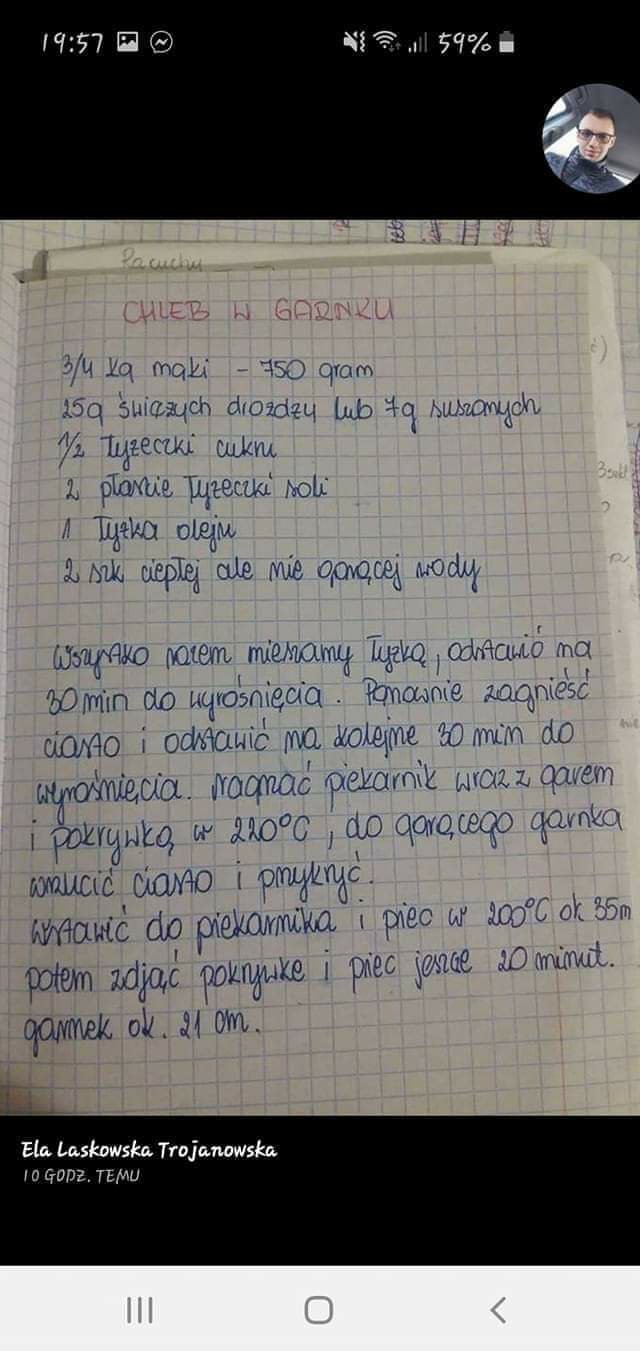 19:57
59%
Racuchy
CHLEB W GARNKU
3/4 kg mąki - 750 gram
25g świążych drożdży lub 7g suszonych
1/2 łyżeczki cukru
2 płaskie łyżeczki soli
1 łyżka oleju
2 szk ciepłej ale nie gorącej wody
Wszystko razem mieszamy łyżką, odstawić na
30 min do wyrośnięcia. Ponownie zagnieść
ciasto i odstawić na kolejne 30 min do
wyrośnięcia. Nagrzać piekarnik wraz z garem
i pokrywką w 220°C, do gorącego garnka
wrzucić ciasto i przykryć.
Wstawić do piekarnika i piec w 200°C ok 35m
potem zdjąć pokrywkę i piec jeszcze 20 minut.
garnek ok. 21 cm.
Ela Laskowska Trojanowska
10 GODZ. TEMU